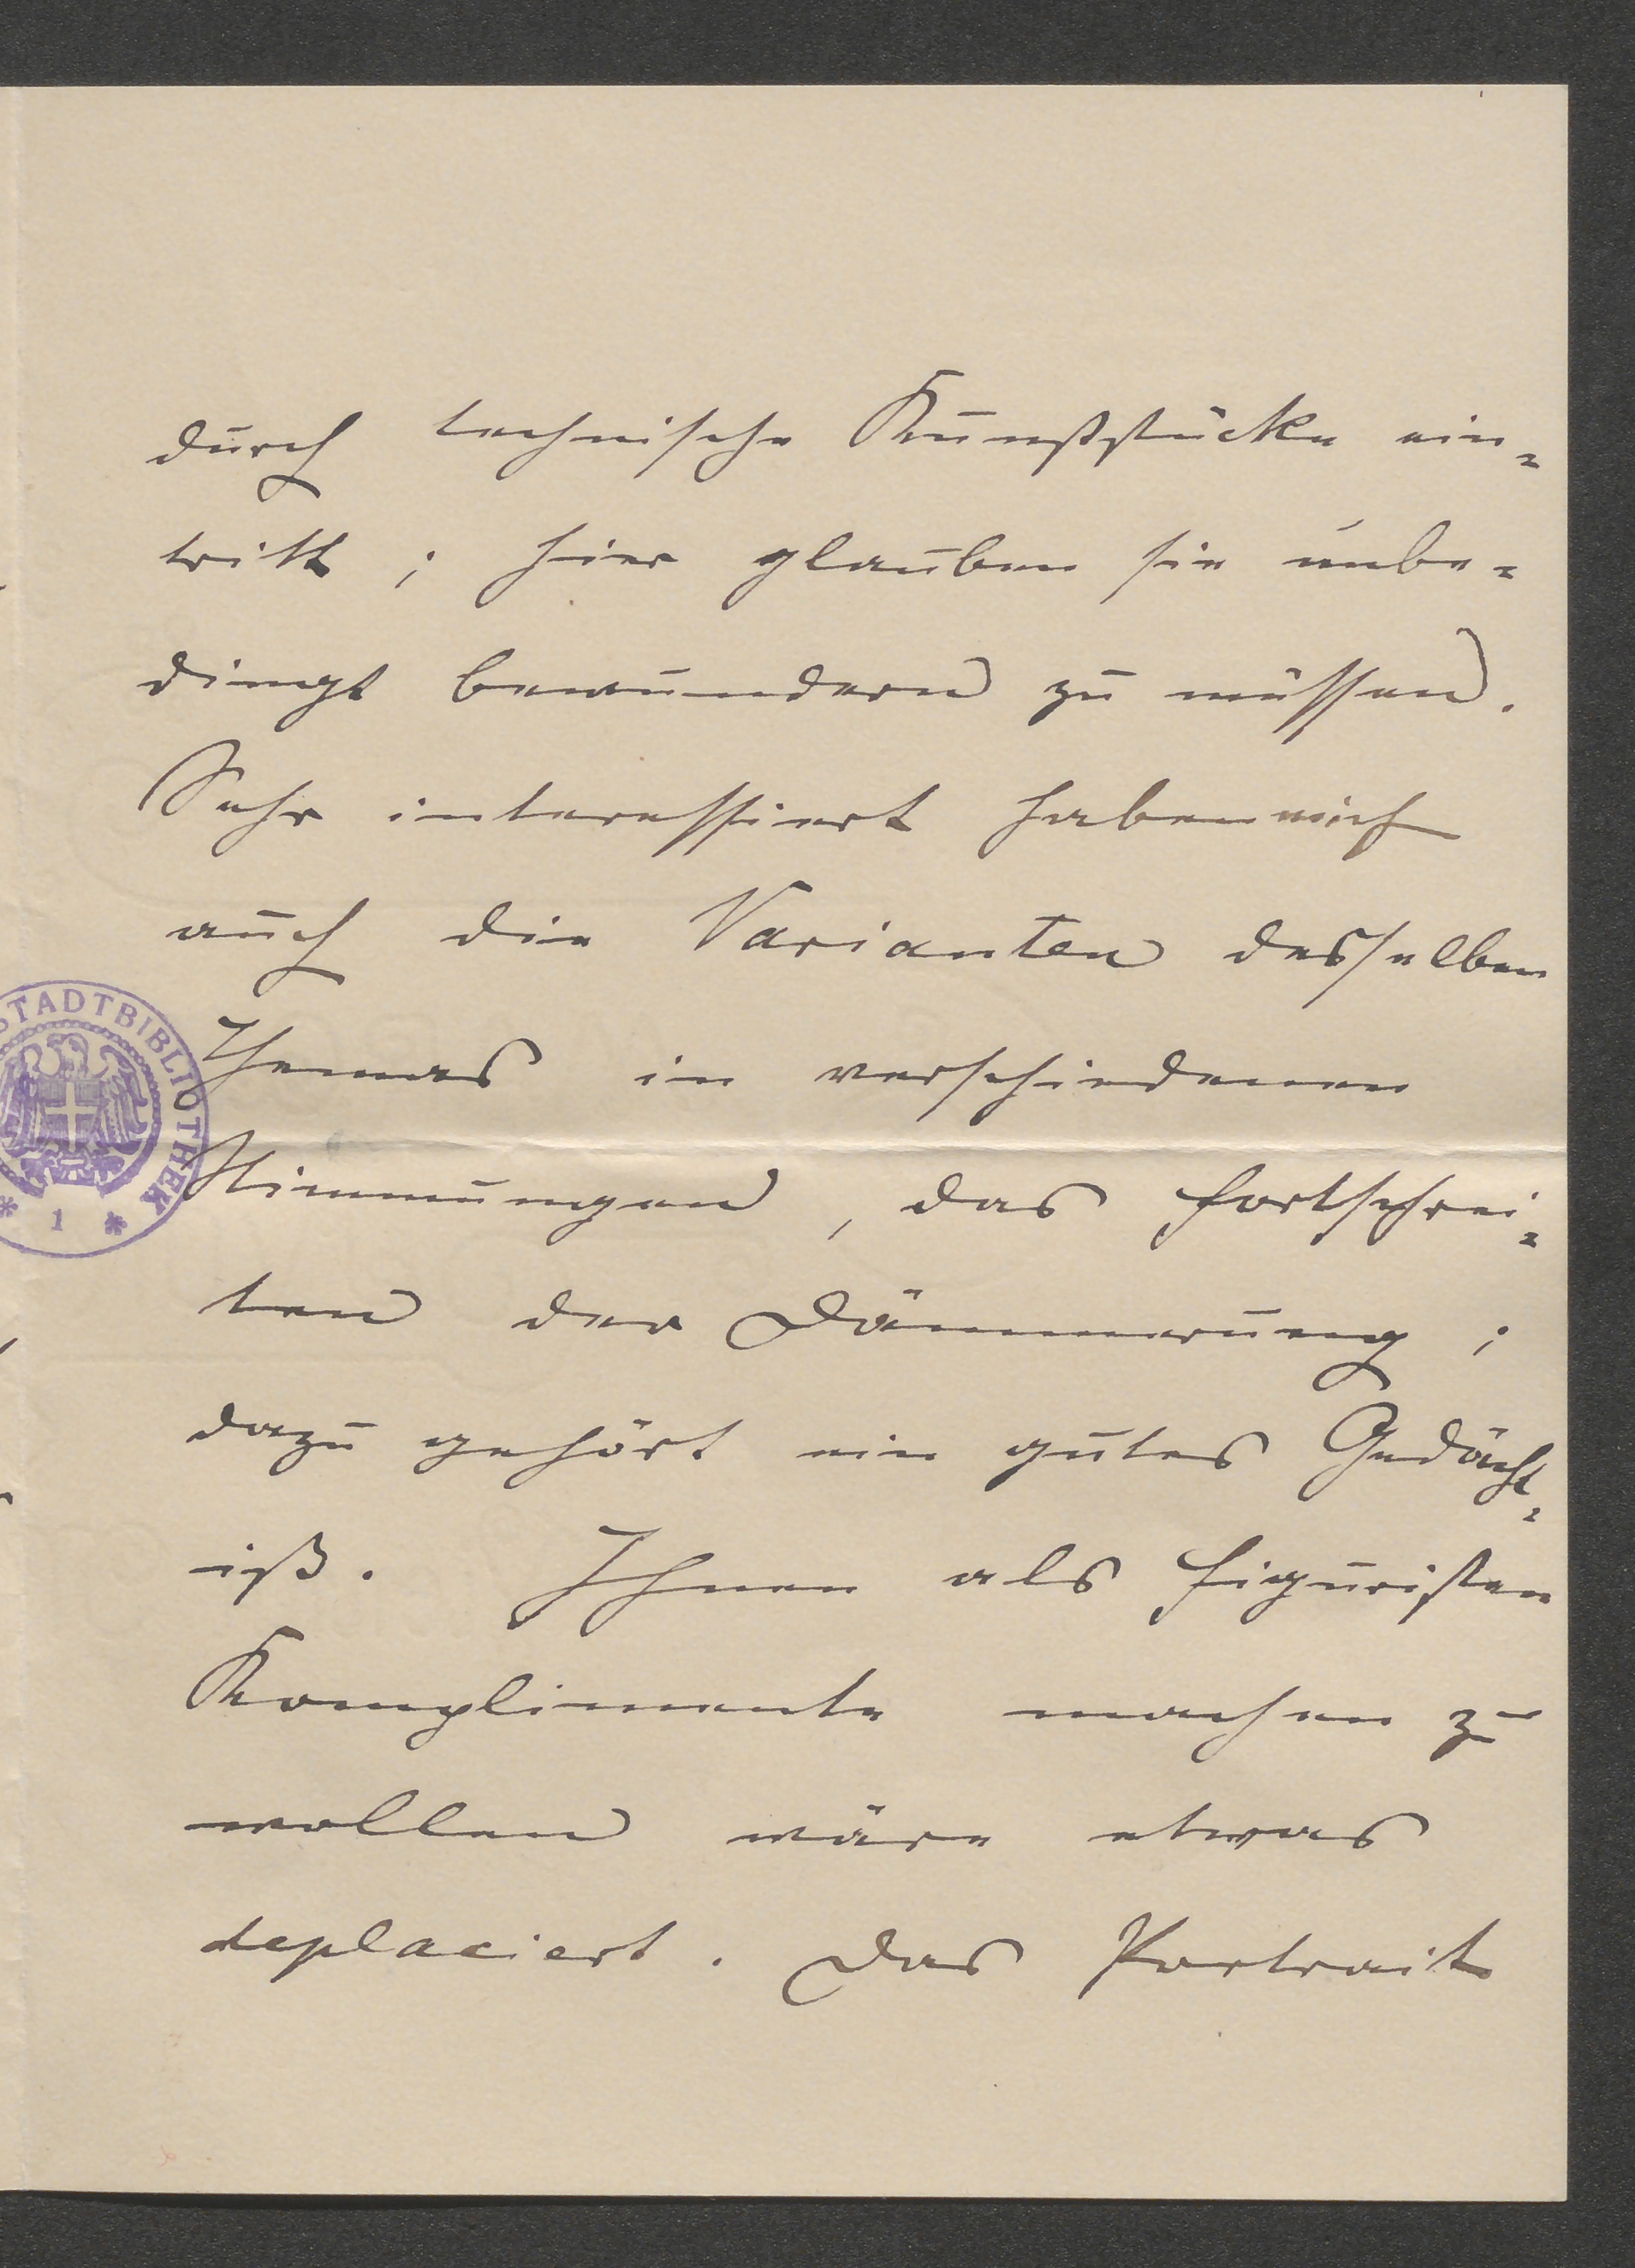 durch technische Kunststücke ein=
tritt; hier glauben sie unbe=
dingt bewundern zu müssen.
Sehr interessiert haben mich
auch die Varianten desselben
Themas in verschiedenen
Stimmungen, das fortschrei=
ten der Dämmerung;
dazu gehört ein gutes Gedächt=
iß. Ihnen als figuristen
Komplimente machen zu
wollen wäre etwas
deplaciert. Das Portrait
STADTBIBLIOTHEK
* 1 *